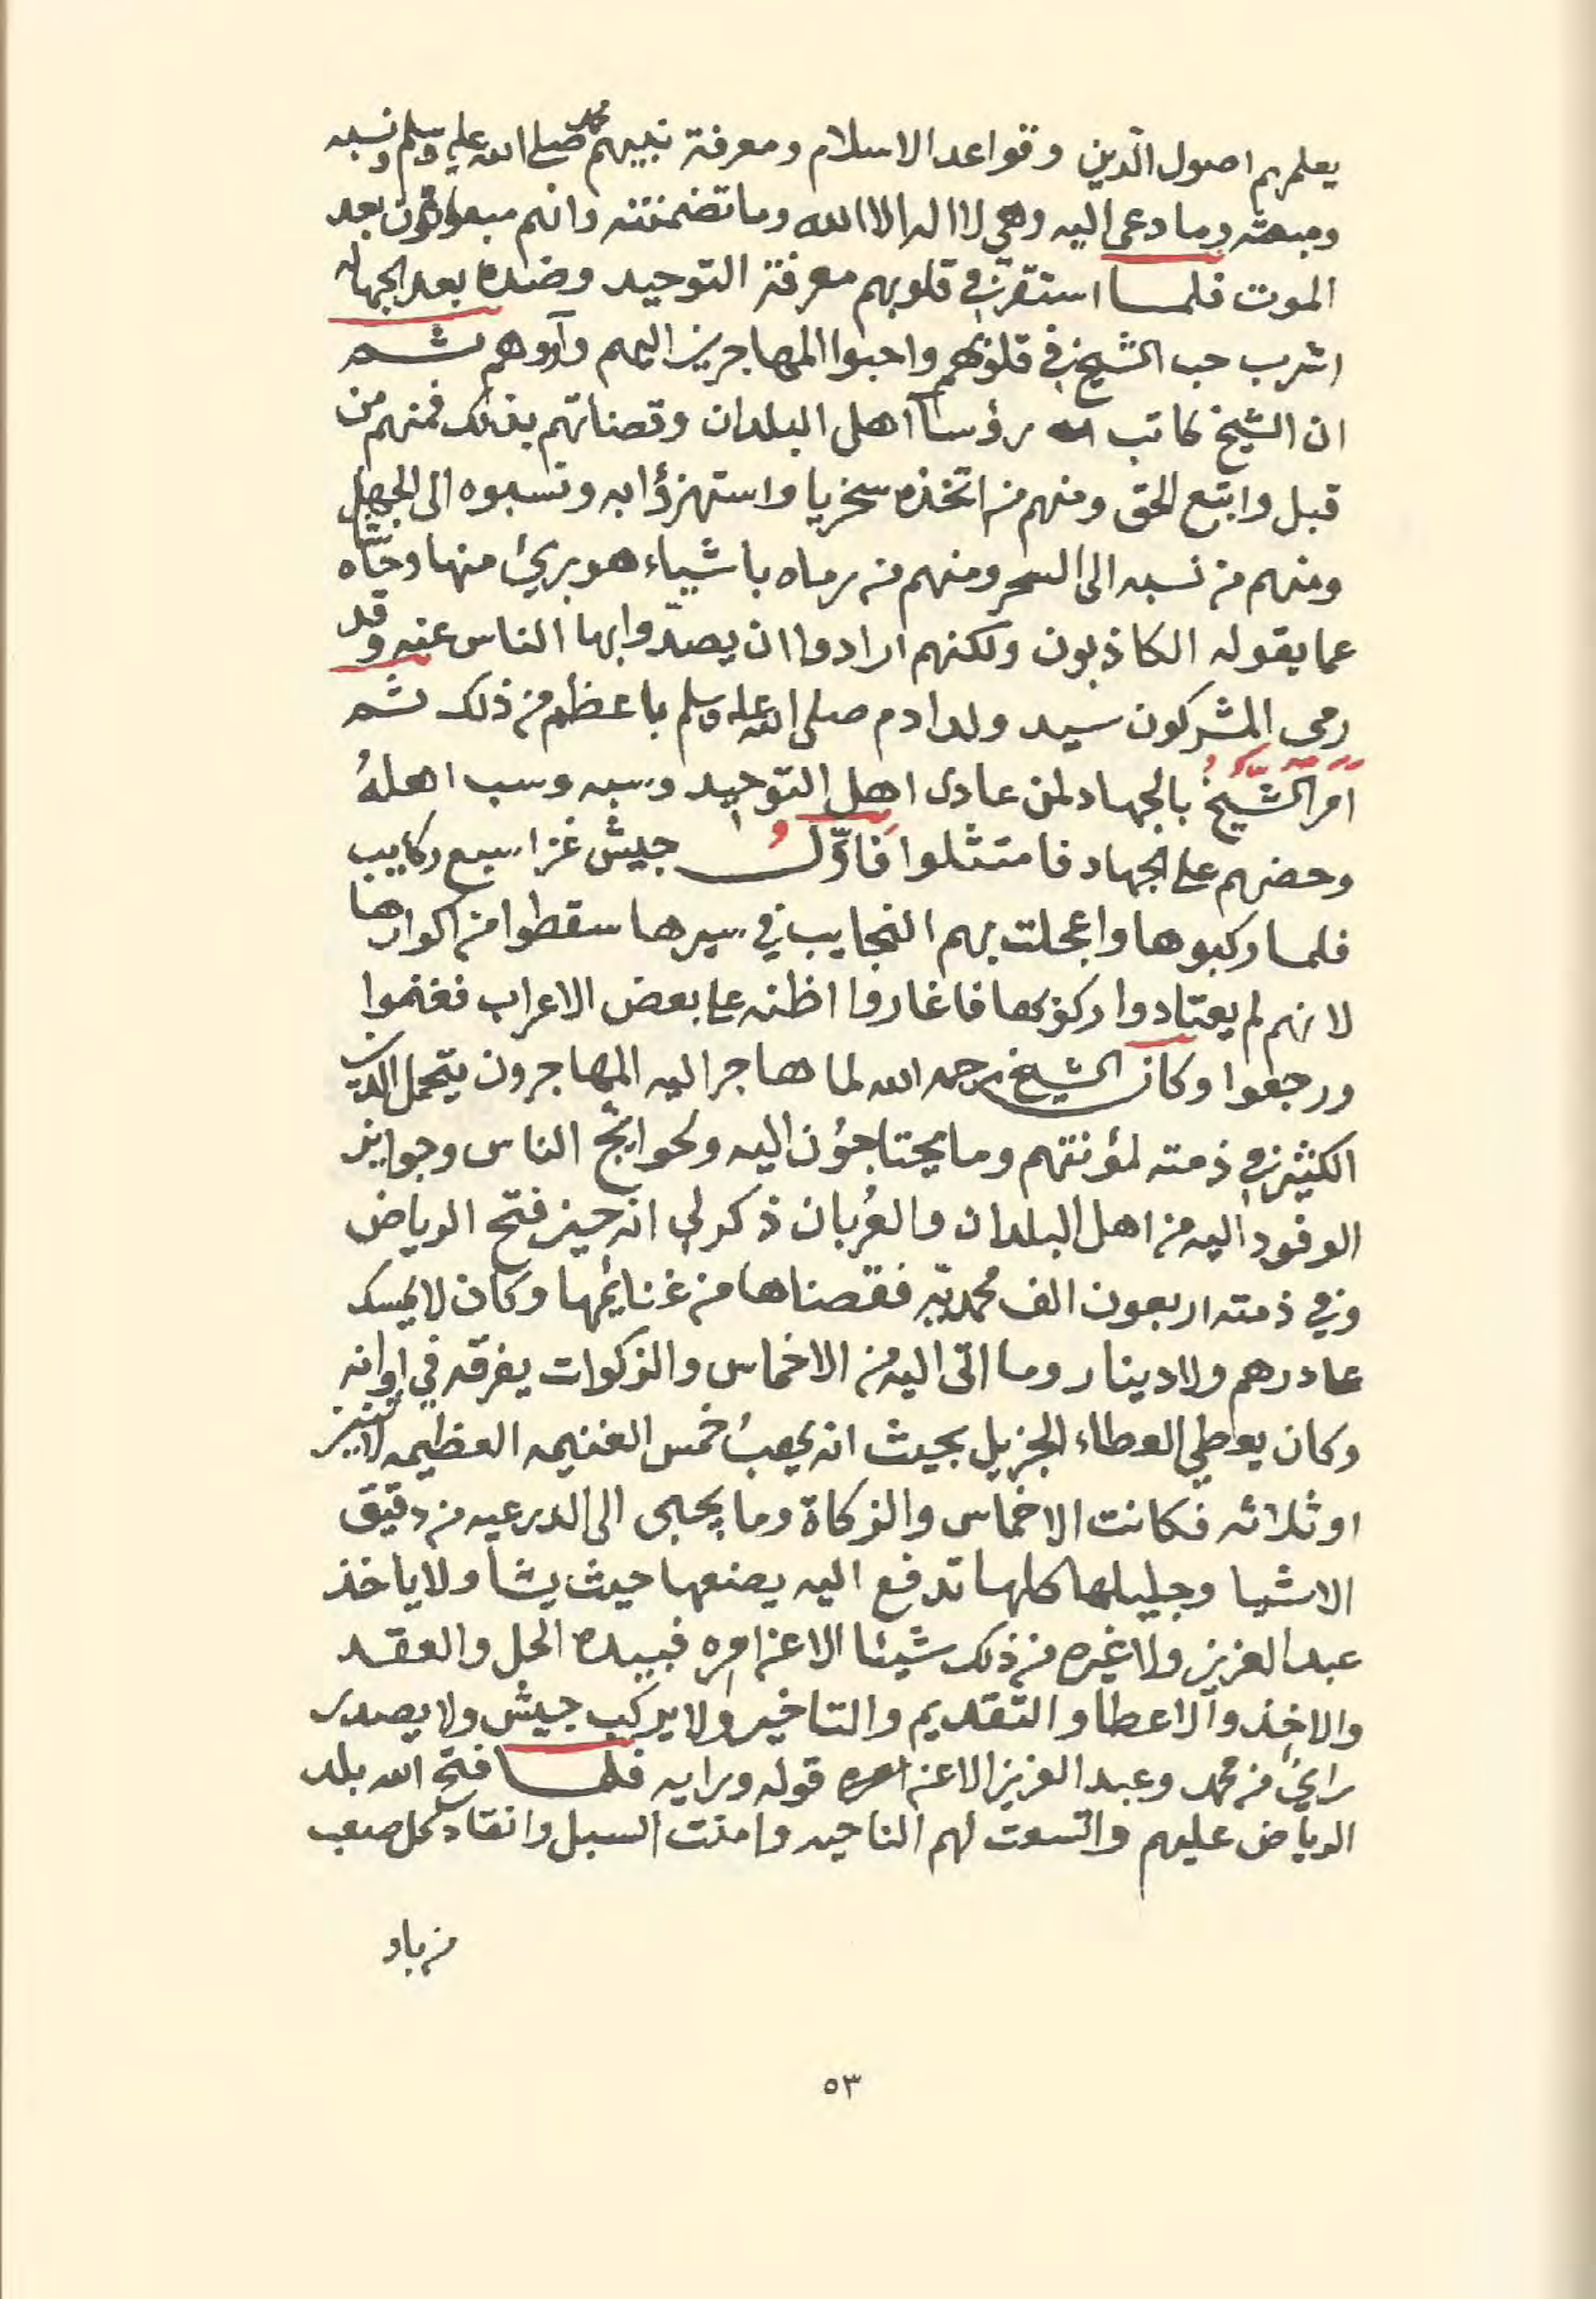 يعلمهم اصول الدين وقواعد الاسلام ومعرفة نبيهم محمد صلى الله عليه وسلم ونسبه
ومبعثه وما دعى اليه وهي لا اله الا الله وما تضمنته وانهم مبعوثون بعد
الموت فلما استقر في قلوبهم معرفة التوحيد وضده بعد الجهاله
اشرب حب الشيخ في قلوبهم واحبوا المهاجرين اليهم وآووهم ثم
ان الشيخ كاتب رؤسآ اهل البلدان وقضاتهم بذلك فمنهم من
قبل واتبع الحق ومنهم من اتخذه سخريا واستهزؤا به ونسبوه الى الجهل
ومنهم من نسبه الى السحر ومنهم من رماه باشياء هو بريئ منها وحاشاه
عما يقوله الكاذبون ولكنهم ارادوا ان يصدوا بها الناس عنه وقد
رمى المشركون سيد ولد ادم صلى الله عليه وسلم باعظم من ذلك ثم
امر الشيخ بالجهاد لمن عادى اهل التوحيد وسبه وسب اهلهُ
وحضهم على الجهاد فامتثلوا فَاوّلُ جيش غزا سبع ركايب
فلما ركبوها واعجلت بهم النجايب في سيرها سقطوا من اكوارها
لانهم لم يعتادوا ركوبها فاغاروا اظنه على بعض الاعراب فغنموا
ورجعوا وكان الشيخ رحمه الله لما هاجر اليه المهاجرون يتحمل الدين
الكثير في ذمته لمؤنتهم وما يحتاجوُن اليه ولحوايج الناس وجوايز
الوفود اليه من اهل البلدان والعُربان ذكر لي انه حين فتح الرياض
وفي ذمته اربعون الف محمديّه فقضاها من غنائمها وكان لا يمسك
على درهم ولا دينار وما اتى اليه من الاخماس والزكوات يفرقه في اوانه
وكان يعطي العطاء الجزيل بحيث انه يهبُ خمس الغنيمه العظيمه لاثنين
او ثلاثه فكانت الاخماس والزكاة وما يجبى الى الدرعيه من دقيق
الاشيا وجليلها كلها تدفع اليه يضعها حيث يشا ولا ياخذ
عبد العزيز ولا غيره من ذلك شيئا الا عن امره فبيده الحل والعقد
والاخذ والاعطا والتقديم والتاخير ولا يركب جيش ولا يصدر
رايٌ من محمد وعبد العزيز الا عن امره قوله ورايه فلما فتح الله بلد
الرياض عليهم واتسعت لهم الناحيه وامنت السبل وانقاد كل صعب
من باد
٥٣